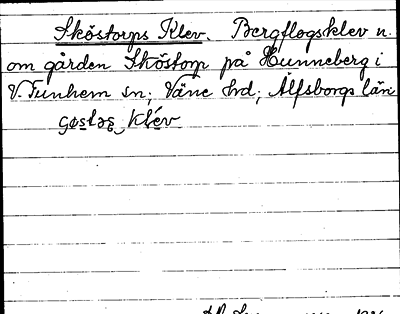 Sköstorps Klev. Bergflogsklev n.
om gården Sköstorp på Hunneberg i
V. Tunhem sn; Väne hd; Älfsborgs län
klév